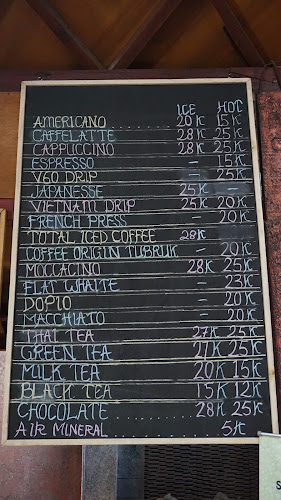 ICE HOT
AMERICANO 20K 15K
CAFFELATTE 28K 25K
CAPPUCCINO 28K 25K
ESPRESSO - 15K
V60 DRIP - 25K
JAPANESSE 25K -
VIETNAM DRIP 25K 20K
FRENCH PRESS - 20K
TOTAL ICED COFFEE 28K
COFFEE ORIGIN TUBRUK - 20K
MOCCACINO 28K 25K
FLAT WHAITE - 23K
DOPIO - 20K
MACCHIATO - 20K
THAI TEA 27K 25K
GREEN TEA 27K 25K
MILK TEA 20K 15K
BLACK TEA 15K 12K
CHOCOLATE 28K 25K
AIR MINERAL 5K